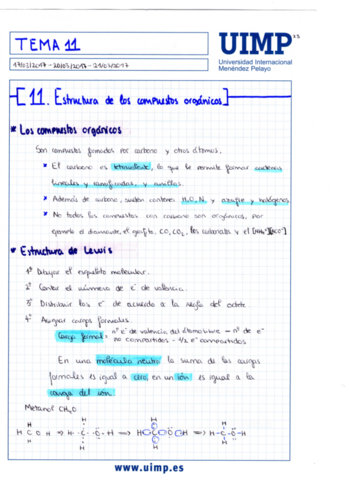 TEMA 11
UIMP
17/03/2017 - 20/03/2017 - 21/03/2017
Universidad Internacional
Menéndez Pelayo
11. Estructura de los compuestos orgánicos
* Los compuestos orgánicos
Son compuestos formados por carbono y otros átomos.
* El carbono es tetravalente, lo que le permite formar cadenas
lineales y ramificadas, y anillos.
* Además de carbono, suelen contener H, O, N, y azufre y halógenos
* No todos los compuestos con carbono son orgánicos, por
ejemplo el diamante, el grafito, CO, CO₂, los carbonatos y el
* Estructura de Lewis
1º Dibujar el esqueleto molecular.
2º Contar el número de e⁻ de valencia.
3º Distribuir los e⁻ de acuerdo a la regla del octete.
4º Asignar cargas formales.
Carga formal = nº e⁻ de valencia del átomo libre - nº de e⁻
no compartidos - 1/2 e⁻ compartidos
En una molécula neutra la suma de las cargas
formales es igual a cero, en un ión es igual a la
carga del ión.
Metanol CH₄O
H H H H
H C O H ⇒ H · C · O · H ⇒ H C O H ⇒ H - C - O - H
H H H H
www.uimp.es